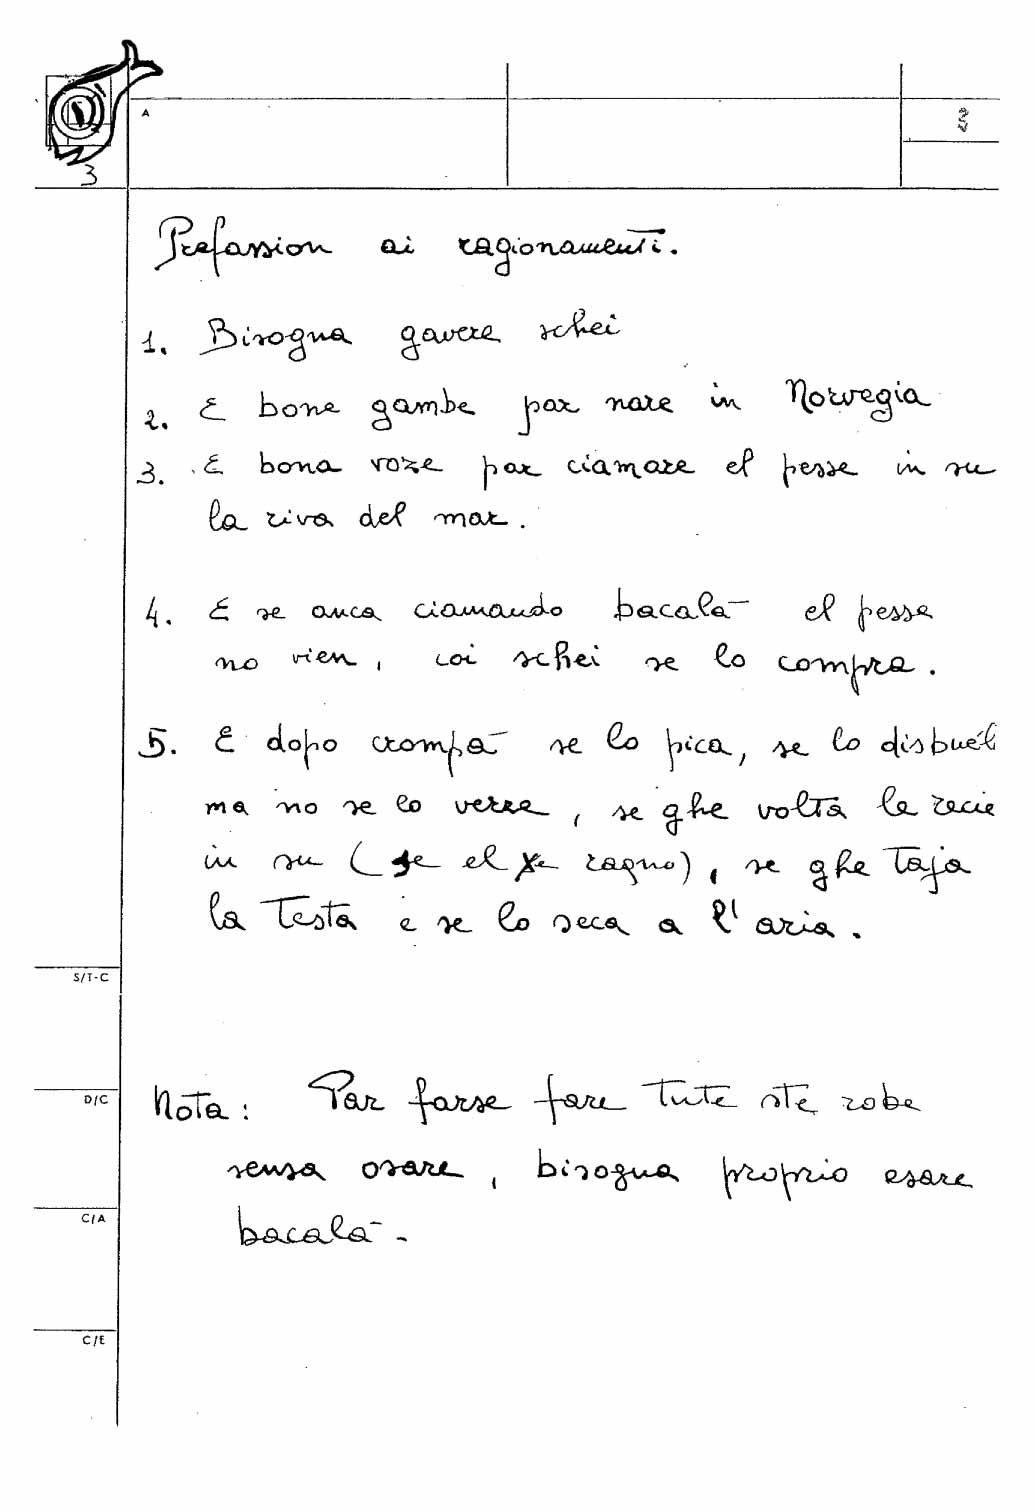 A
3
Prefassion ai ragionamenti.
1. Bisogna gavere schei
2. E bone gambe par nare in Norvegia
3. E bona voze par ciamare el pesse in su
la riva del mar.
4. E se anca ciamando bacalà el pesse
no vien, coi schei se lo compra.
5. E dopo crompà se lo pica, se lo disbuél
ma no se lo verze, se ghe volta le recie
in su (se el xe ragno), se ghe taja
la testa e se lo seca a l'aria.
S/T-C
D/C
Nota: Par farse fare tute ste robe
sensa osare, bisogna proprio esare
C/A
bacalà.
C/E